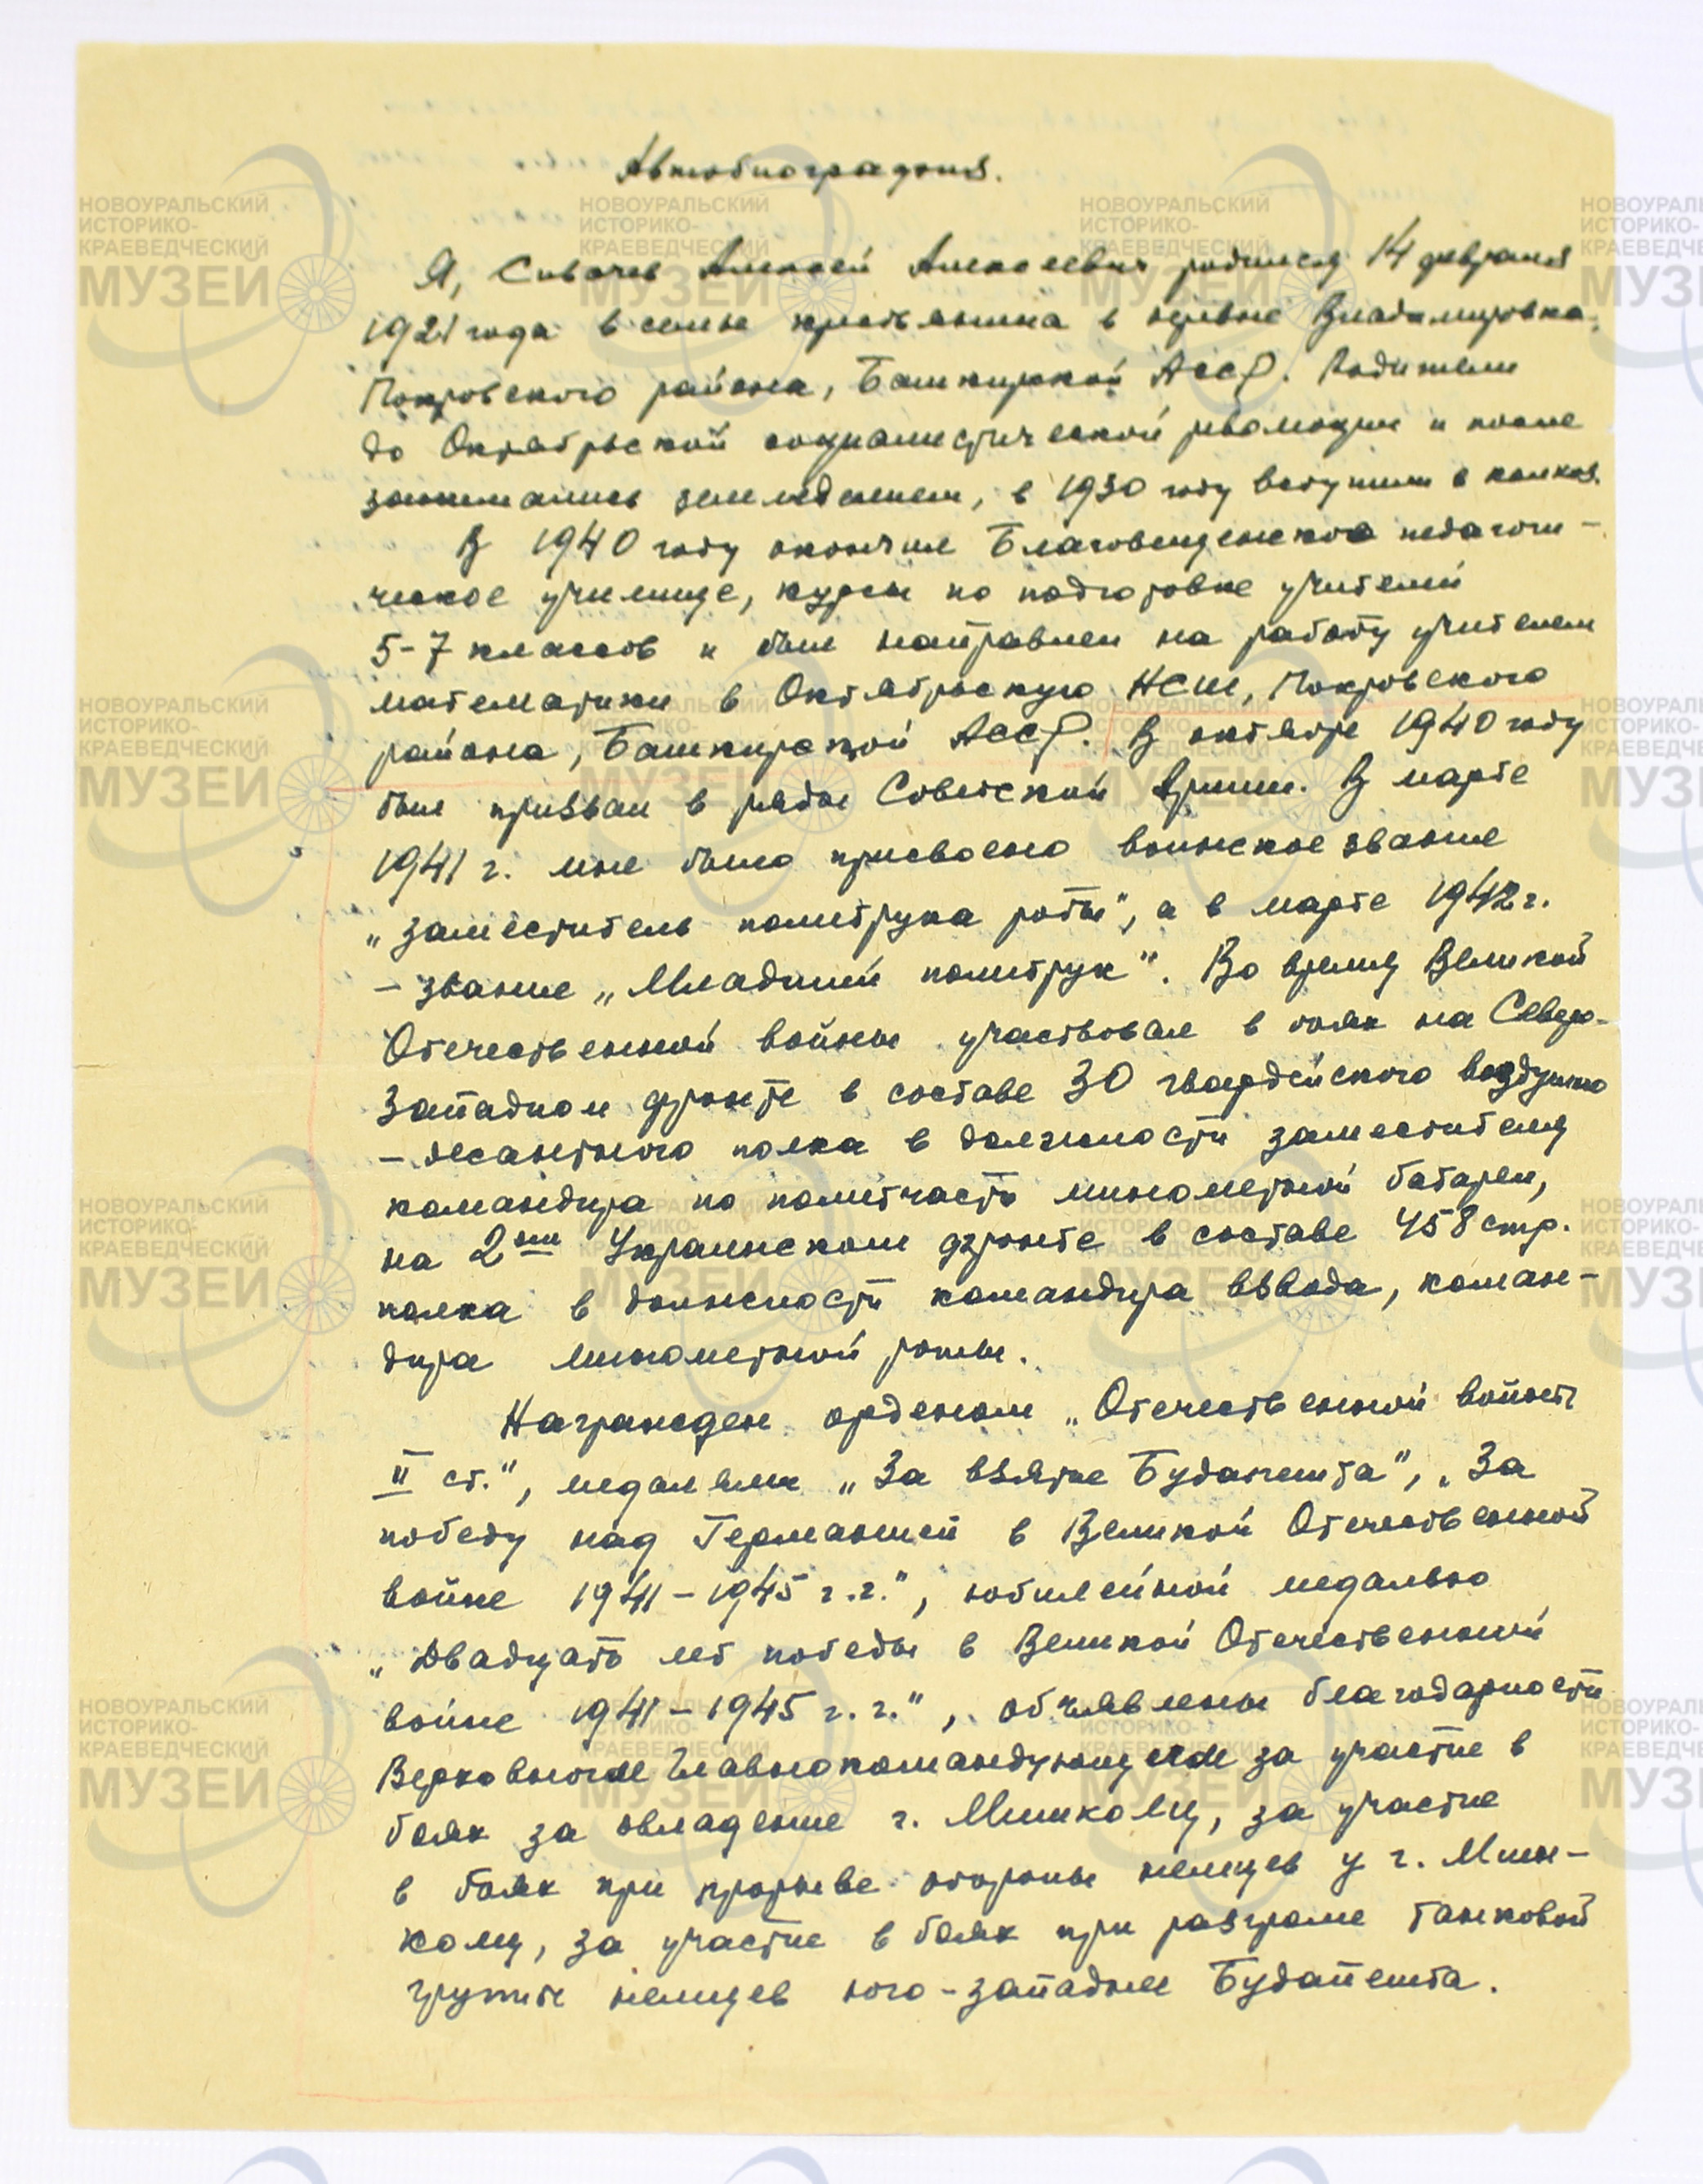 Автобиография.
Я, Сивачев Алексей Алексеевич родился 14 февраля
1921 года в семье крестьянина в деревне Владимировка,
Покровского района, Башкирской АССР. Родители
до Октябрьской социалистической революции и после
занимались земледелием, в 1930 году вступили в колхоз.
В 1940 году окончил Благовещенское педагоги-
ческое училище, курсы по подготовке учителей
5-7 классов и был направлен на работу учителем
математики в Октябрьскую НСШ, Покровского
района, Башкирской АССР. В октябре 1940 году
был призван в ряды Советской Армии. В марте
1941 г. мне было присвоено воинское звание
„Заместитель политрука роты", а в марте 1942 г.
- звание „Младший политрук". Во время Великой
Отечественной войны участвовал в боях на Северо-
Западном фронте в составе 30 гвардейского воздушно
- десантного полка в должности заместителя
командира по политчасти минометной батареи,
на 2ом Украинском фронте в составе 458 стр.
полка в должности командира взвода, коман-
дира минометной роты.
Награжден орденом „Отечественной войны
II ст.", медалями „За взятие Будапешта", „За
победу над Германией в Великой Отечественной
войне 1941-1945 г.г.", юбилейной медалью
„Двадцать лет победы в Великой Отечественной
войне 1941-1945 г.г.", объявлены благодарности
Верховным Главнокомандующим за участие в
боях за овладение г. Мишкольц, за участие
в боях при прорыве обороны немцев у г. Миш-
кольц, за участие в боях при разгроме танковой
группы немцев юго-западнее Будапешта.
НОВОУРАЛЬСКИЙ
ИСТОРИКО-
КРАЕВЕДЧЕСКИЙ
МУЗЕЙ